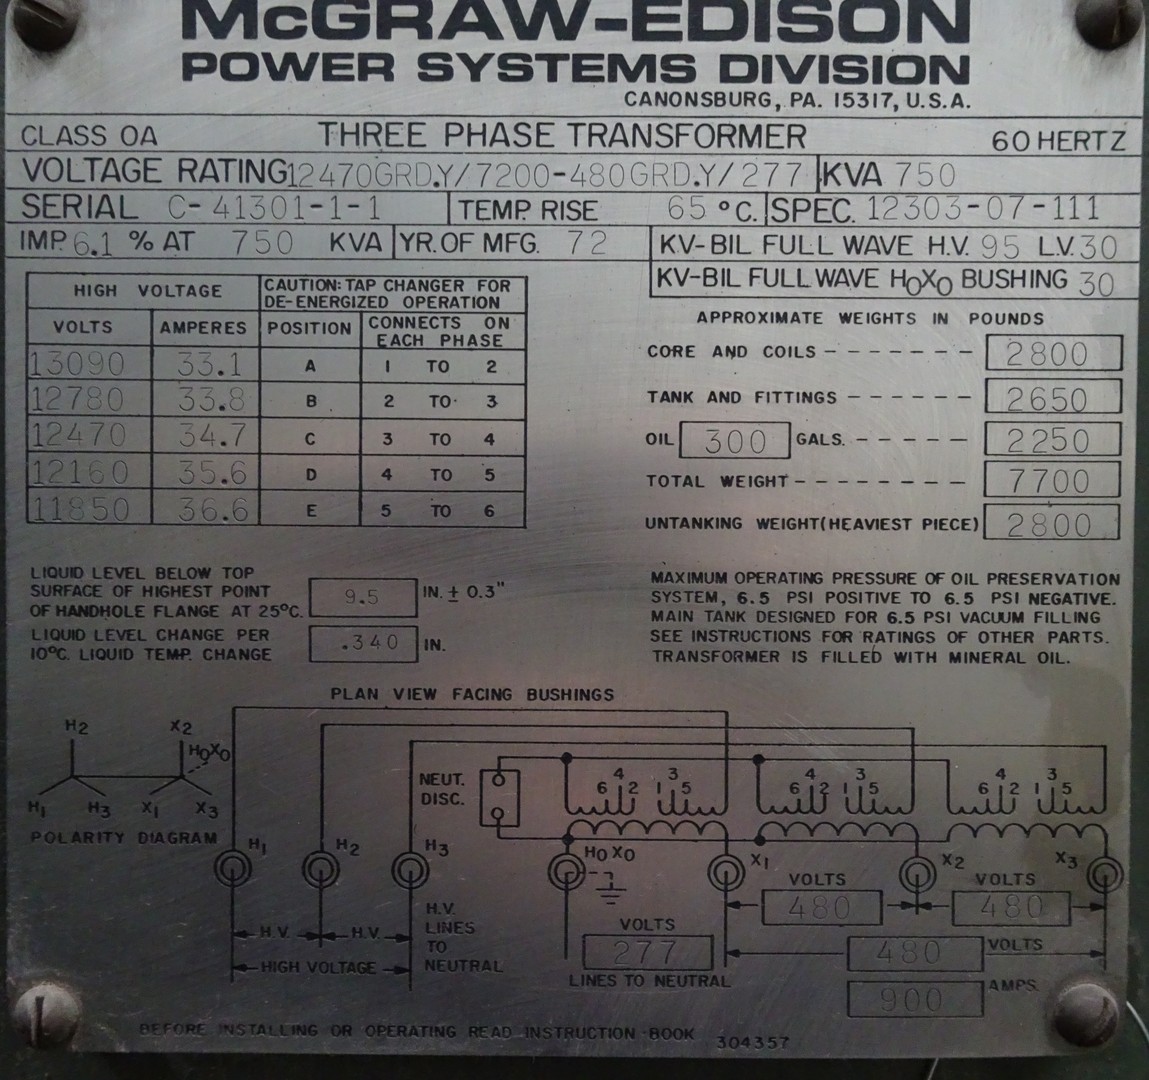 McGRAW-EDISON
POWER SYSTEMS DIVISION
CANONSBURG, PA. 15317, U.S.A.
CLASS OA THREE PHASE TRANSFORMER 60 HERTZ
VOLTAGE RATING 12470GRD.Y/7200-480GRD.Y/277 KVA 750
SERIAL C-41301-1-1 TEMP. RISE 65 °C. SPEC. 12303-07-111
IMP. 6.1 % AT 750 KVA YR. OF MFG. 72 KV-BIL FULL WAVE H.V. 95 L.V. 30
KV-BIL FULL WAVE H0X0 BUSHING 30
HIGH VOLTAGE CAUTION: TAP CHANGER FOR
DE-ENERGIZED OPERATION
VOLTS AMPERES POSITION CONNECTS ON
EACH PHASE
13090 33.1 A 1 TO 2
12780 33.8 B 2 TO 3
12470 34.7 C 3 TO 4
12160 35.6 D 4 TO 5
11850 36.6 E 5 TO 6
APPROXIMATE WEIGHTS IN POUNDS
CORE AND COILS - - - - - - - 2800
TANK AND FITTINGS - - - - - - 2650
OIL 300 GALS. - - - - - 2250
TOTAL WEIGHT - - - - - - - - 7700
UNTANKING WEIGHT (HEAVIEST PIECE) 2800
LIQUID LEVEL BELOW TOP
SURFACE OF HIGHEST POINT
OF HANDHOLE FLANGE AT 25°C. 9.5 IN. ± 0.3"
LIQUID LEVEL CHANGE PER
10°C. LIQUID TEMP. CHANGE .340 IN.
MAXIMUM OPERATING PRESSURE OF OIL PRESERVATION
SYSTEM, 6.5 PSI POSITIVE TO 6.5 PSI NEGATIVE.
MAIN TANK DESIGNED FOR 6.5 PSI VACUUM FILLING
SEE INSTRUCTIONS FOR RATINGS OF OTHER PARTS.
TRANSFORMER IS FILLED WITH MINERAL OIL.
PLAN VIEW FACING BUSHINGS
H2 X2
H0X0
H1 H3 X1 X3
POLARITY DIAGRAM
NEUT.
DISC.
4 3 4 3 4 3
6 2 1 5 6 2 1 5 6 2 1 5
H1 H2 H3 H0 X0 X1 X2 X3
VOLTS VOLTS
480 480
H.V. H.V.
HIGH VOLTAGE
H.V.
LINES
TO
NEUTRAL
VOLTS
277
LINES TO NEUTRAL
480 VOLTS
900 AMPS.
BEFORE INSTALLING OR OPERATING READ INSTRUCTION BOOK 304357